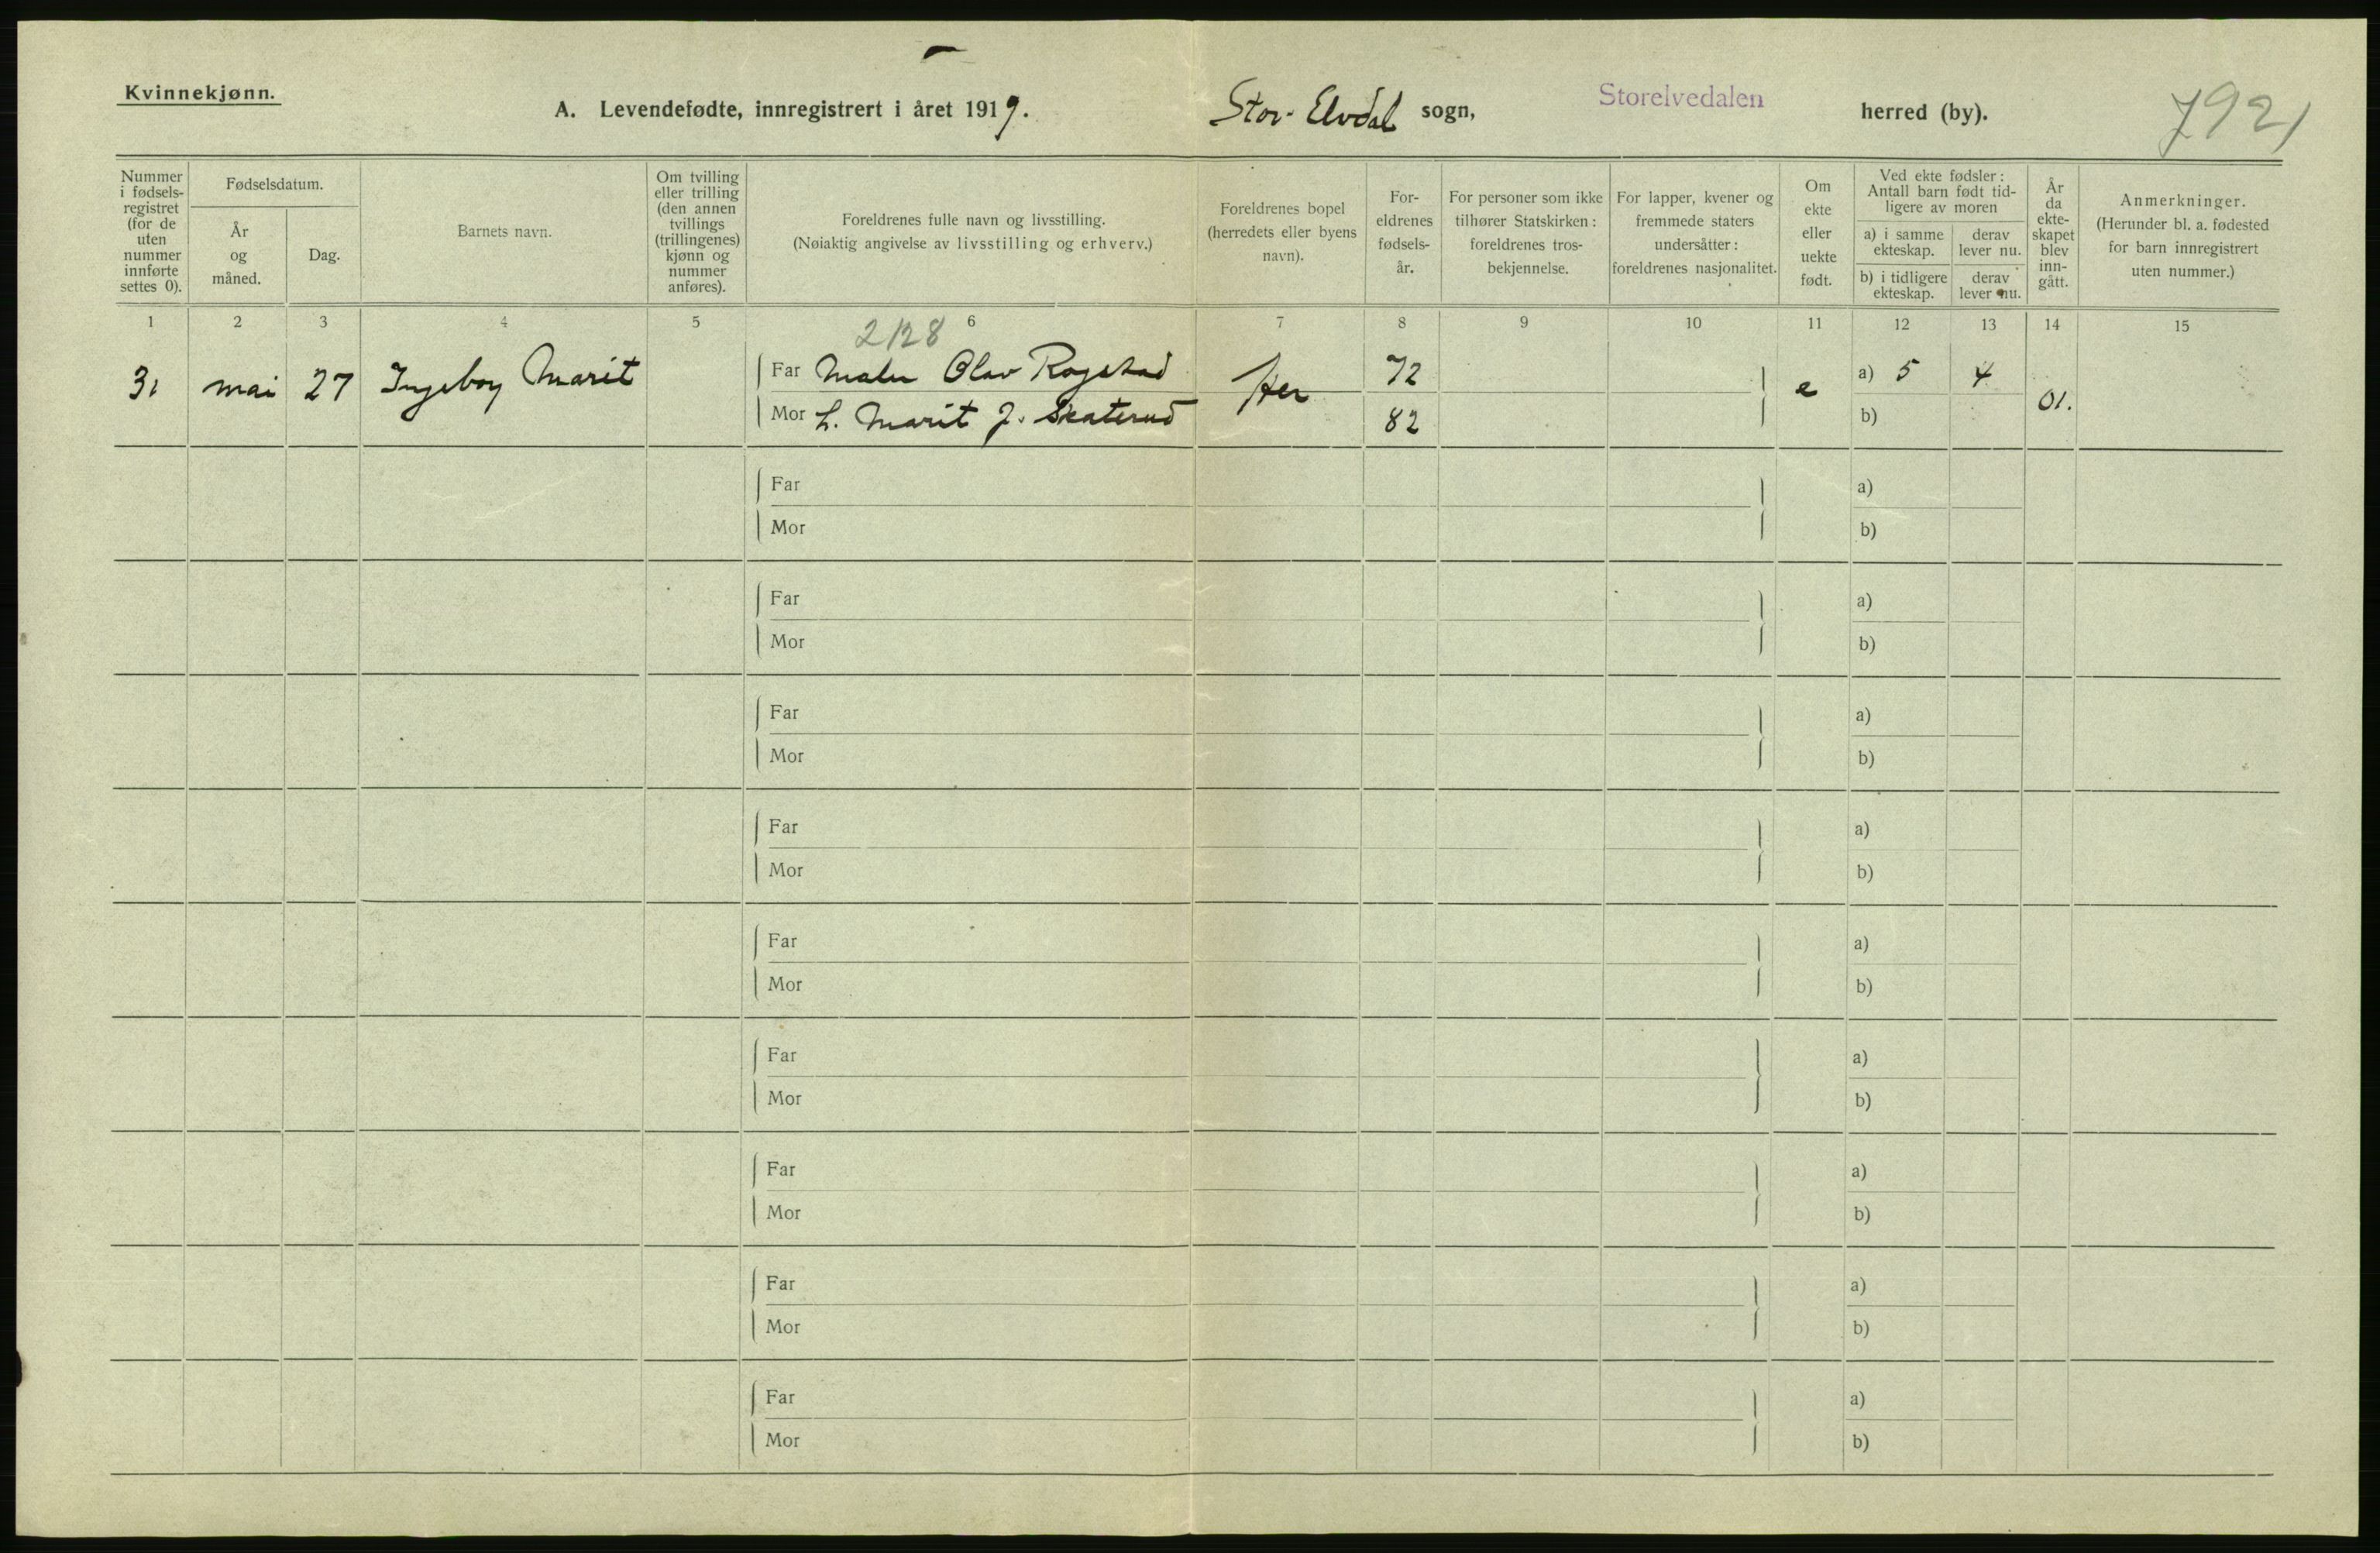 Kvinnekjønn.
A. Levendefødte, innregistrert i året 1919.
Stor-Elvdal sogn,
Storelvedalen
herred (by).
7921
Nummer
i fødsels-
registret
(for de
uten
nummer
innførte
settes 0).
Fødselsdatum.
År
og
måned.
Dag.
Barnets navn.
Om tvilling
eller trilling
(den annen
tvillings
(trillingenes)
kjønn og
nummer
anføres).
Foreldrenes fulle navn og livsstilling.
(Nøiaktig angivelse av livsstilling og erhverv.)
Foreldrenes bopel
(herredets eller byens
navn).
For-
eldrenes
fødsels-
år.
For personer som ikke
tilhører Statskirken:
foreldrenes tros-
bekjennelse.
For lapper, kvener og
fremmede staters
undersåtter:
foreldrenes nasjonalitet.
Om
ekte
eller
uekte
født.
Ved ekte fødsler:
Antall barn født tid-
ligere av moren
a) i samme
ekteskap.
derav
lever nu.
b) i tidligere
ekteskap.
derav
lever nu.
År
da
ekte-
skapet
blev
inn-
gått.
Anmerkninger.
(Herunder bl. a. fødested
for barn innregistrert
uten nummer.)
1 2 3 4 5 6 7 8 9 10 11 12 13 14 15
2128
31 mai 27 Ingeborg Marit
Far Maler Olav Rogstad
Mor h. Marit J. Skaterud
Her
72
82
e
a) 5 4
b)
01.
Far
Mor
a)
b)
Far
Mor
a)
b)
Far
Mor
a)
b)
Far
Mor
a)
b)
Far
Mor
a)
b)
Far
Mor
a)
b)
Far
Mor
a)
b)
Far
Mor
a)
b)
Far
Mor
a)
b)